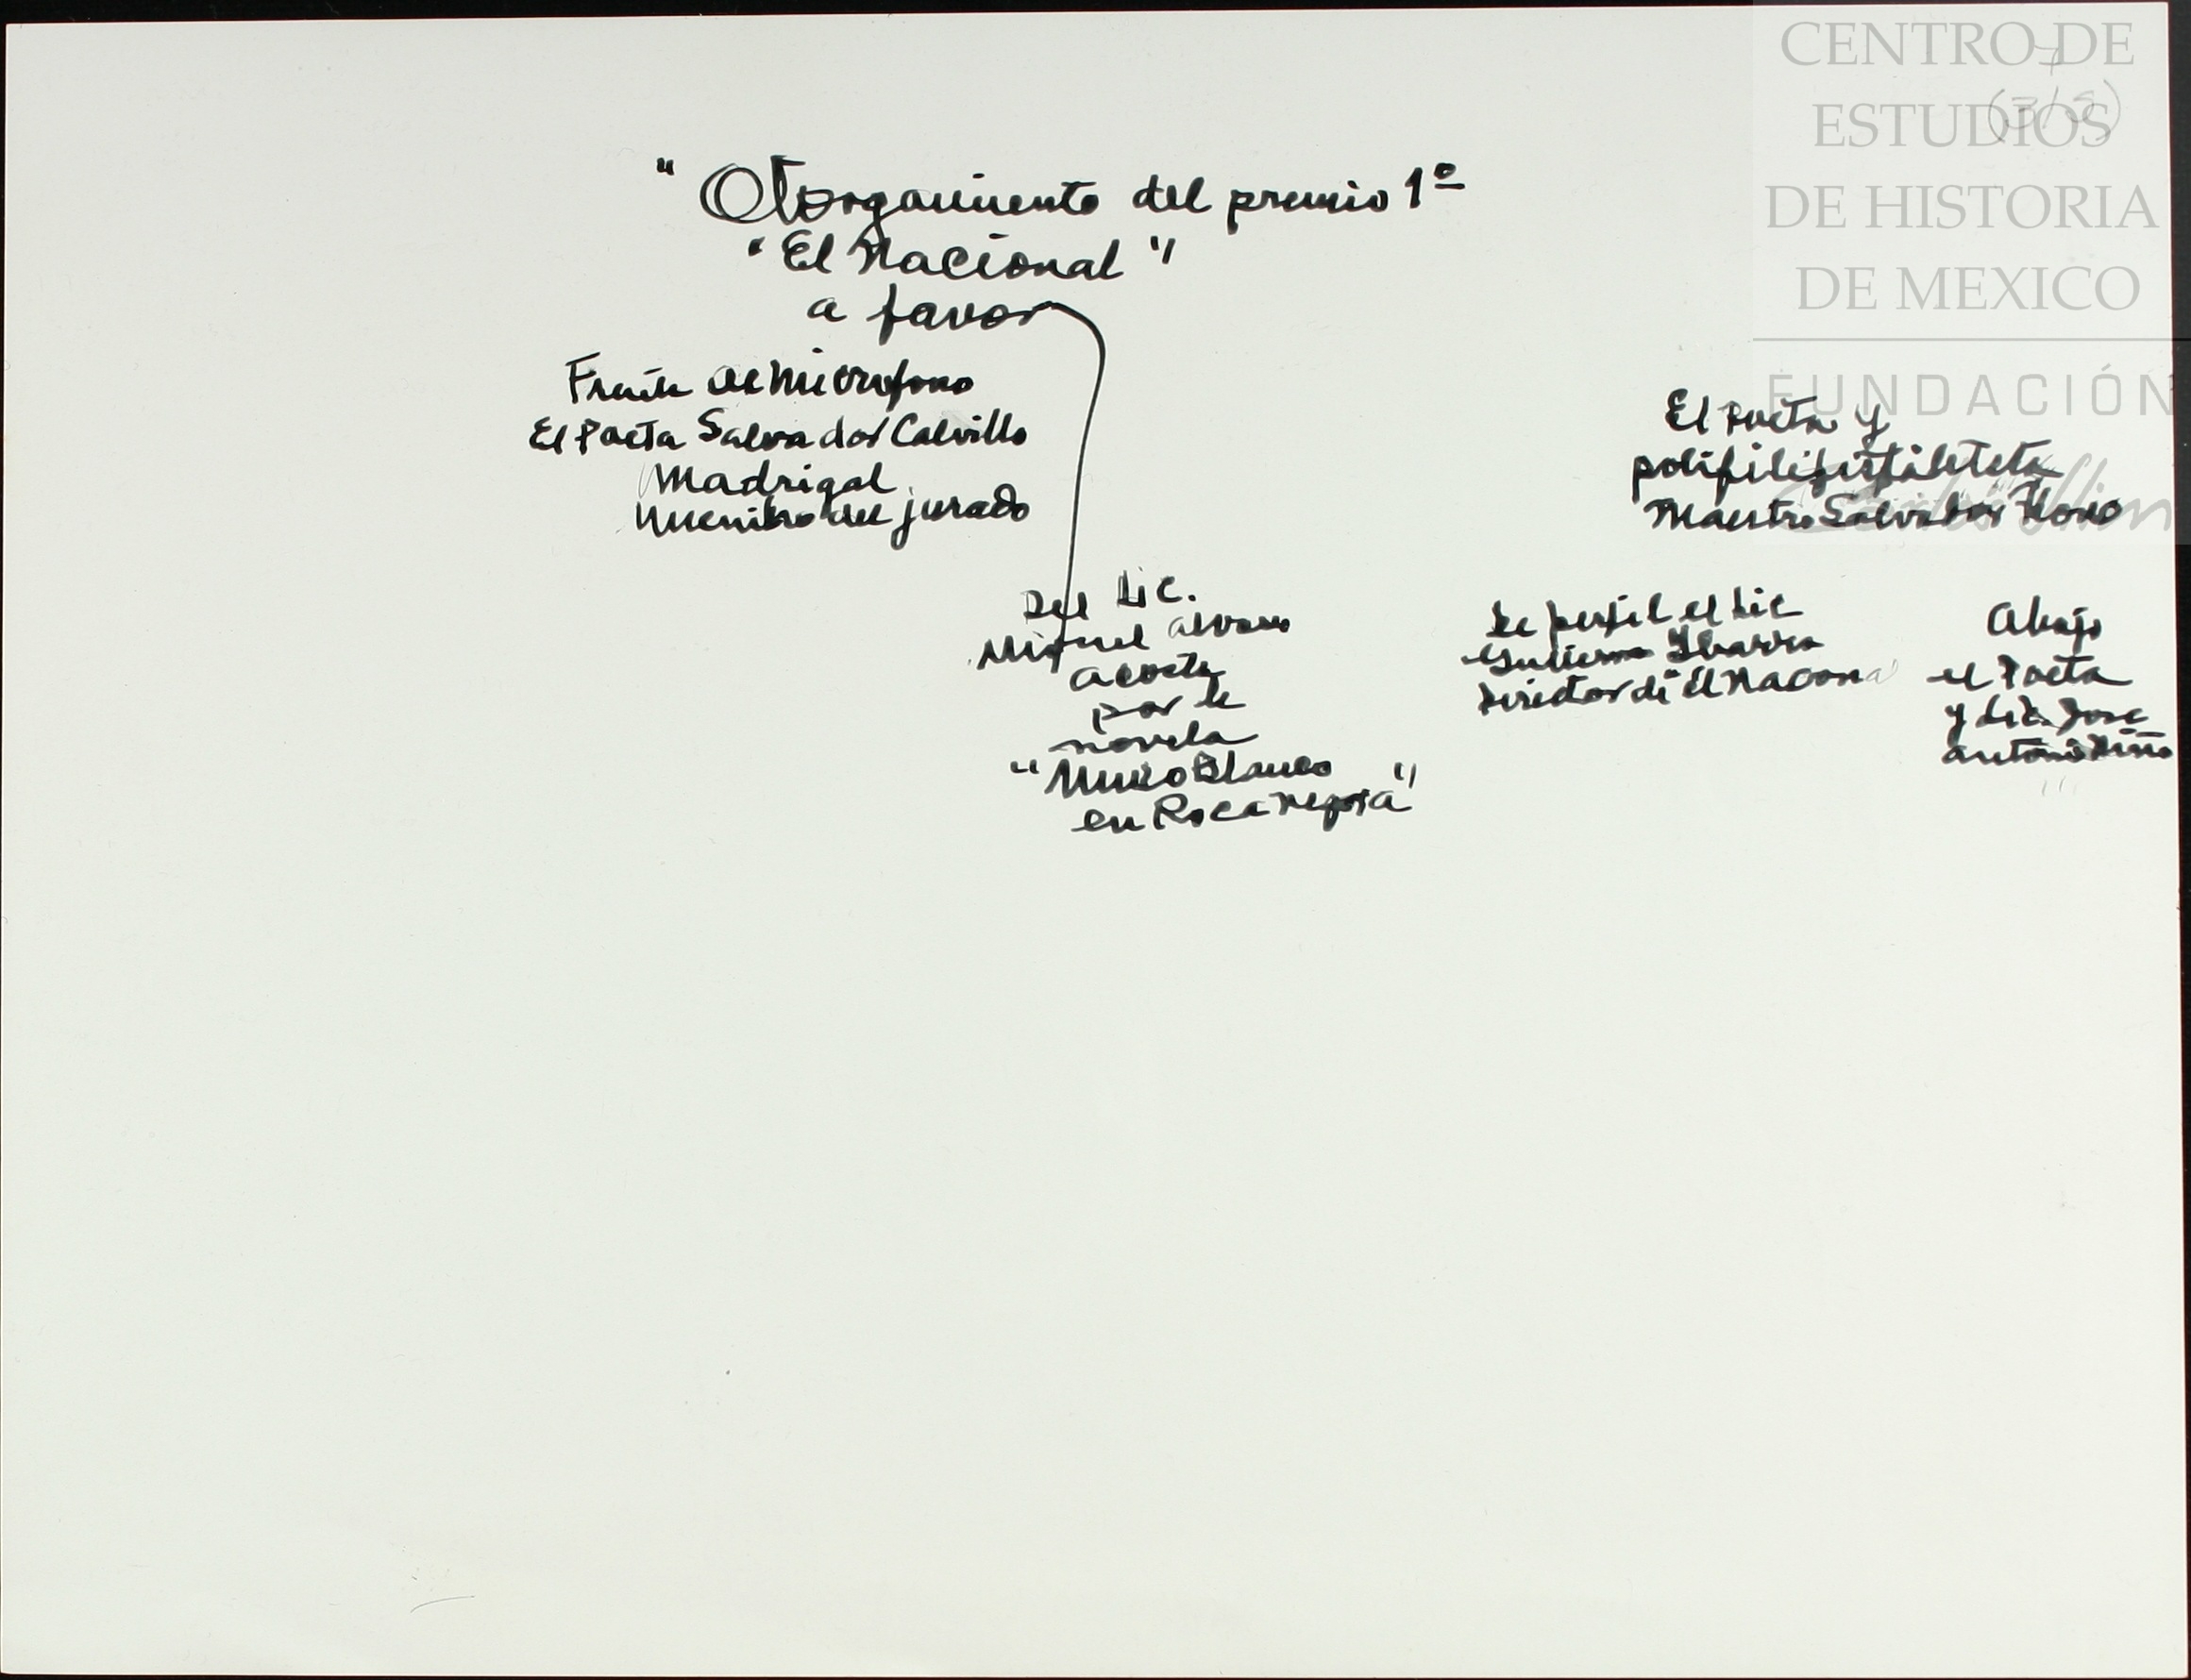 CENTRO DE
ESTUDIOS
DE HISTORIA
DE MEXICO
FUNDACIÓN
7
(3/3)
" Otorgamiento del premio 1º
"El Nacional"
a favor
Frente al microfono
El Poeta Salvador Calvillo
Madrigal
Miembro del jurado
Del Lic.
Miguel Alvarez
Acosta
por la
novela
"Muro Blanco
en Roca negra"
El Poeta y
Maestro Salvador Novo
De perfil el Lic
Guillermo Ybarra
Director de El Nacional
Abajo
el Poeta
y Lic. Jose
Antonio